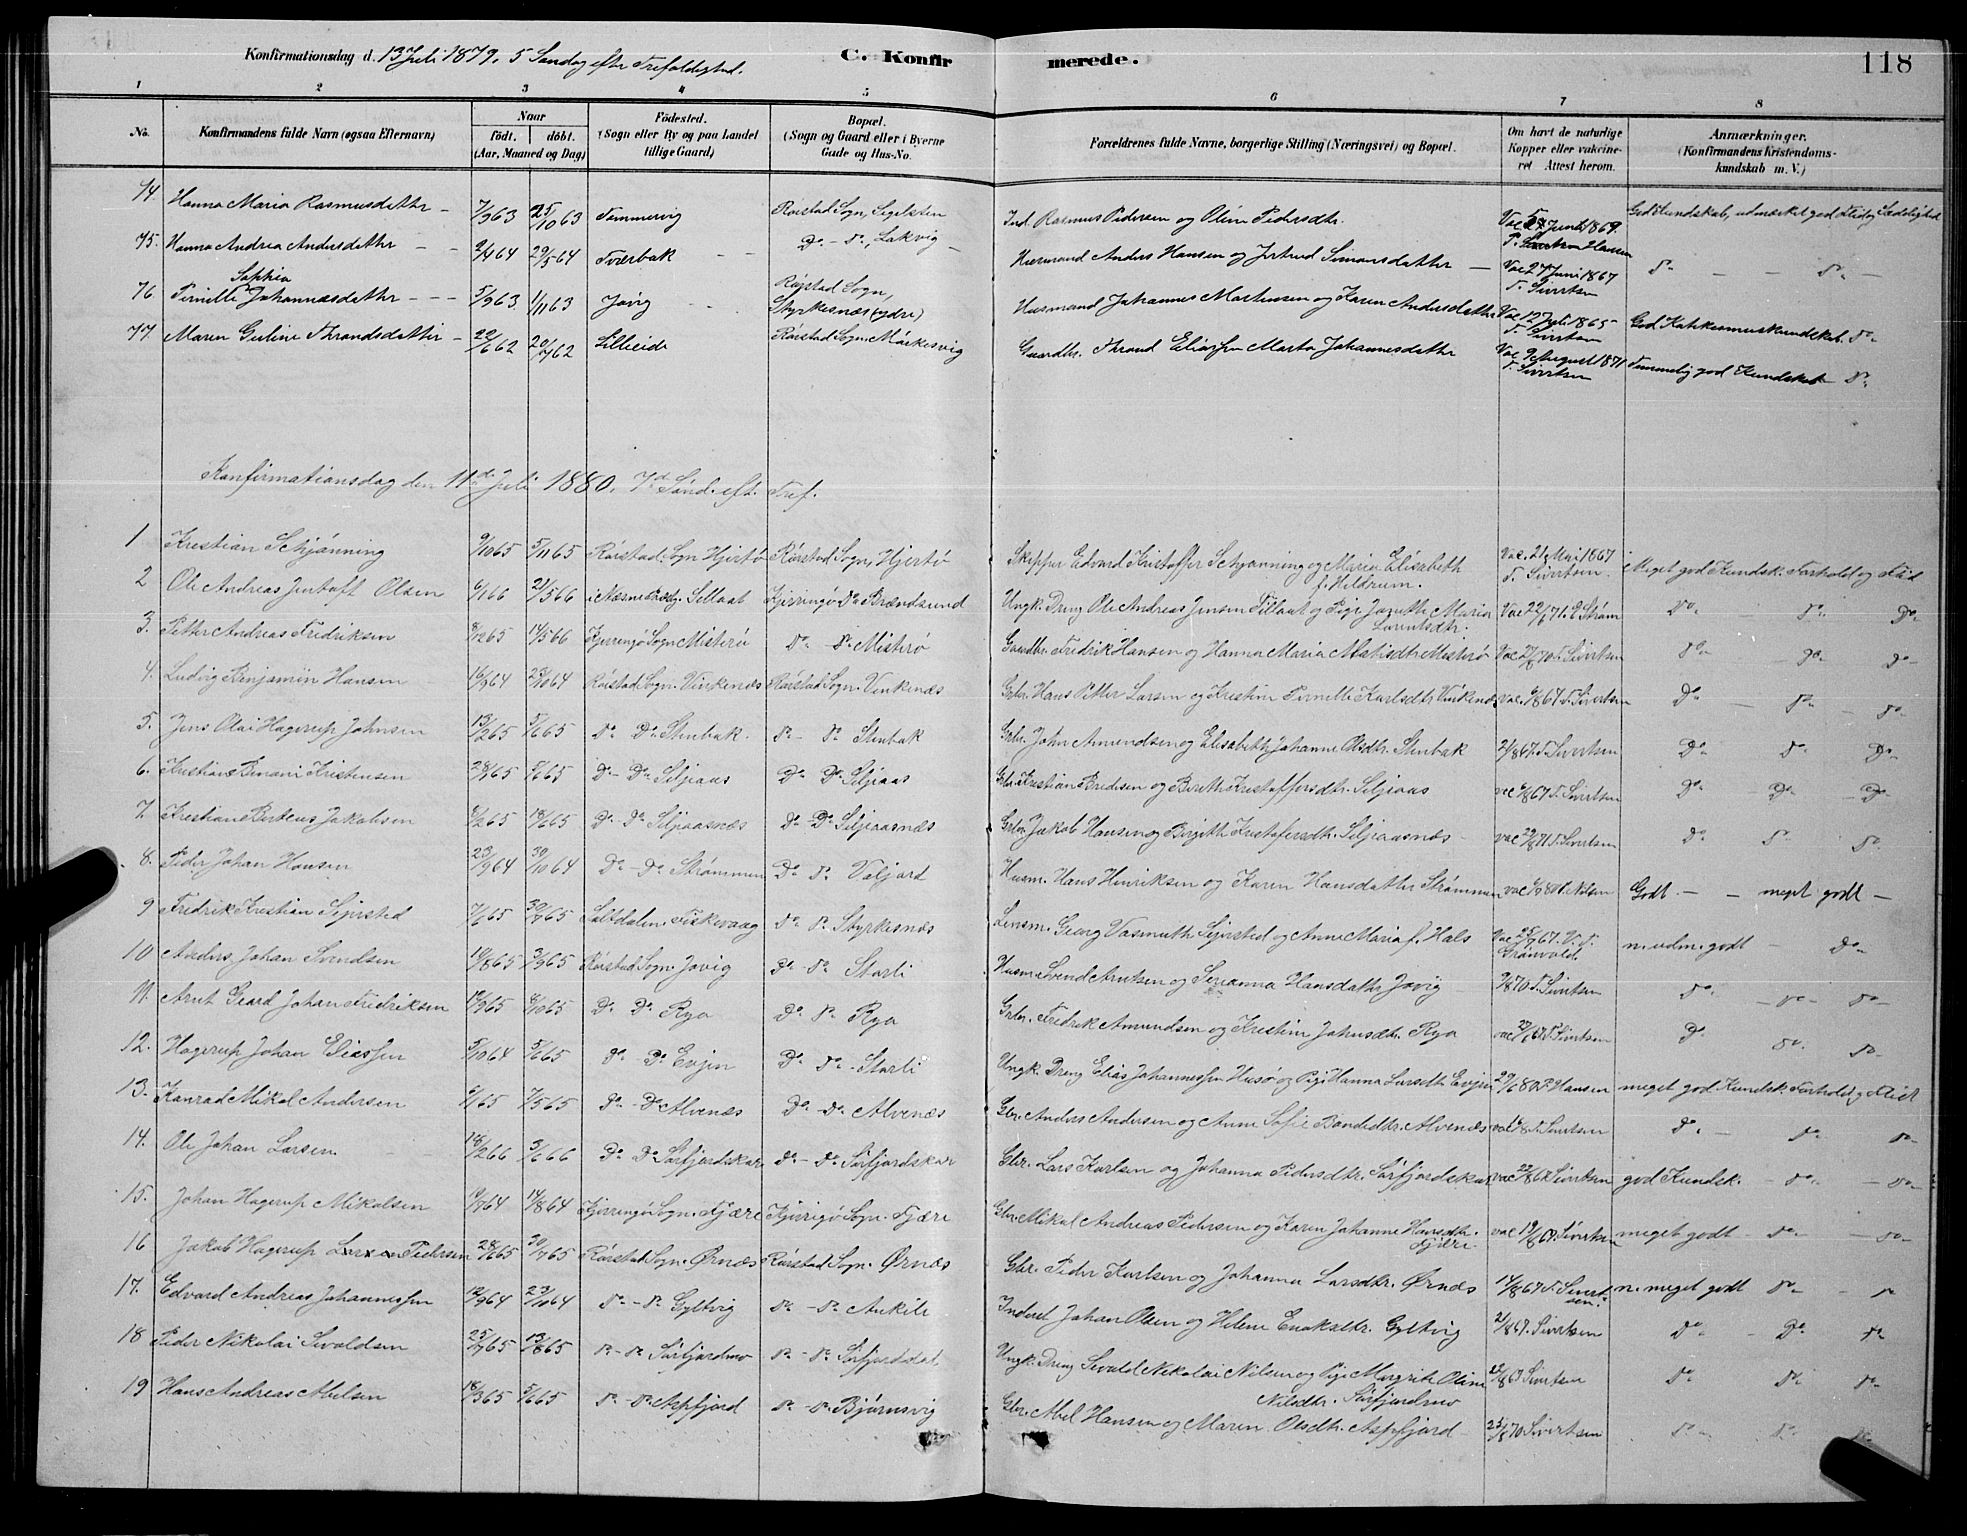 Konfirmationsdag d. 13 Juli 1879, 5 Søndag efter Trefoldighed. C. Konfir merede. 118
1 2 3 4 5 6 7 8
No. Konfirmandens fulde Navn (ogsaa Efternavn) Naar født. døbt. (Aar, Maaned og Dag) Fødested. (Sogn eller By og paa Landet tillige Gaard) Bopæl. (Sogn og Gaard eller i Byerne Gade og Hus-No. Forældrenes fulde Navne, borgerlige Stilling (Næringsvei) og Bopæl. Om havt de naturlige Kopper eller vakcineret Attest herom. Anmærkninger. (Konfirmandens Kristendomskundskab m. V.)
74. Hanna Maria Rasmusdatter 7/9 63 25/10 63 Tømmervig Rørstad Sogn, Ind. Rasmus Pedersen og Oline Pedersdtr. Vac Juni 1869. God Kundskab, udmærket god Flid og Sædelighed
75. Hanna Andrea Andersdatter 9/4 64 29/5 64 Tverbak Do - Do, Lakvig Husmand Anders Hansen og Jertrud Simonsdatter Vac 27 Juni 1867 T. Sivertsen Do Do
76. Pernille Sophia Johannesdatter 5/9 63 1/11 63 Jøvig Rørstad Sogn, Styrkesnæs (ydre) Husmand Johannes Mortensen og Karen Andersdatter Vac 12 Juli 1865 T. Sivertsen God Katekismuskundskab. Do
77. Maren Guline Thrandsdatter 22/6 62 20/7 62 Lilleeide Rørstad Sogn Mørkesvig Gaardbr. Thrand Eliassen Marta Johannesdatter Vac 9 August 1871 T. Sivertsen Temmelig god Kundskab Do
Konfirmationsdag den 11te Juli 1880. 7de Sønd. eft. Tref.
1 Kristian Schjønning 9/10 65 5/11 65 Rørstad Sogn Hjertø Rørstad Sogn, Hjertø Skipper Edvard Kristoffer Schjønning og Maria Elisabeth f. Hildrum. Vac. 21 Mai 1867 T. Sivertsen Meget god Kundsk. Forhold og Flid
2 Ole Andreas Jentoft Olsen 6/1 66 21/5 66 i Næsne Kjerringø Do Brændsund Ungk. Dreng Ole Andreas Jensen og Pige Maria Larsdtr. Vac 22/ 71. Strøm Do Do Do
3. Petter Andreas Fredriksen 8/12 65 14/5 66 Kjerringø Sogn Misterø Do Do Misterø Gaardbr. Fredrik Hansen og Hanna Maria Matisdtr Misterø Vac 70 T. Sivertsen Do Do Do
4. Ludvig Benjamin Hansen 16/9 64 23/10 64 Rørstad Sogn. Vinkenæs Rørstad Sogn. Vinkenæs Grbr. Hans Petter Larsen og Kristine Pernille Karlsdtr Vinkenæs vac. 6/8 67 T. Sivertsen Do Do Do
5. Jens Olai Hagerup Johnsen 13/2 65 5/6 65 Do Do Stenbak. Do Do Stenbak Grbr. John Amundsen og Elisabeth Johanne Olsdtr. Stenbak 2/8 67. T. Sivertsen Do Do Do
6. Kristian Benoni Kristensen 65 5/6 65 Do Do Siljeaas Do Do Siljeaas Gbr Kristian Bredesen og Berith Kristoffersdtr. Siljeaas vac 6/8 67 T. Sivertsen Do Do Do
7. Kristian Berteus Jakobsen 6/2 65 18/6 65 Do Do Siljeaasnæs Do Do Siljeaasnæs Grbr Jakob Hansen og Birgith Kristofersdtr. Siljeaasnæs vac 29/8 71 T. Sivertsen Do Do Do
8. Peder Johan Hansen 23/9 64 30/10 64 Do Do Strømmen Do Do Valjord Husm. Hans Hinriksen og Karen Hansdatter Strømmen vac Nilsen Godt meget godt
9 Fredrik Kristian Sejersted 7/6 65 30/7 65 Saltdalen. Fiskevaag Do Do Styrkesnæs Lensm. Georg Vasmuth Sejersted og Anne Maria f. Hals Vac 25/9 67. Grønvold. n. udm. godt Do
10 Anders Johan Svendsen 18/8 65 3/9 65 Rørstad Sogn. Jøvig Do Do Storli Husm. Svend Arntsen og Susanna Hansdatter Jøvig 7/8 70 T. Sivertsen Do Do Do
11. Arnt Geard Johan Fredriksen 17/9 65 8/10 65 Do Do Rya Do Do Rya Grbr. Fredrik Amundsen og Kristine Johnsdtr. Rya vac T. Sivertsen Do Do Do
12. Hagerup Johan Eliassen 5/10 64 5/6 65 Do Do Evjen Do Do Storli Ungk. Dreng Elias Johannessen Husø og Pige Hanna Larsdtr Evjen 29/6 80 P. Hansen meget god Kundsk. Forhold og Flid
13. Konrad Mikal Andersen 6/1 65 7/5 65 Do Do Alvenæs Do Do Alvenæs Gbr. Anders Andersen og Anne Sofie Alvenæs vac T. Sivertsen Do Do Do
14. Ole Johan Larsen 18/2 66 3/6 66 Do Do Sørfjordskar Do Do Sørfjordskar Gbr. Lars Karlsen og Johanna Pedersdtr. Sørfjordskar vac Sivertsen god Kundsk. Do Do
15. Johan Hagerup Mikalsen 9/7 64 14/8 64 Kjerringø Sogn. Fjære Kjerringø Sogn. Fjære Gbr. Mikal Andreas Pedersen og Karen Johanne Hansdtr. Fjære vac 19/8 67. Sivertsen meget godt Do Do
16 Jakob Hagerup Pedersen 28/6 65 30/7 65 Rørstad Sogn. Ørnæs Rørstad Sogn. Ørnæs Gbr. Peder Karlsen og Johanna Larsdtr. Ørnæs 14/8 67 T. Sivertsen. n. meget godt Do Do
17. Edvard Andreas Johannessen 12/9 64 23/10 64 Do Do Gyltvig Do Do Inderst Johan Olsen og Helene Enoksdtr. Gyltvig 2/8 67. Sivertsen Do Do Do
18 Peder Nikolai Sivaldsen 25/7 65 13/8 65 Do Do Sørfjordmo Do Do Sørfjorddal. Ungk. Dreng Sivald Nikolai Nilsen og Pige Margrete Oline Nilsdtr. Sørfjordmo 12/8 67 Sivertsen Do Do Do
19 Hans Andreas Abelsen 18/3 65 5/6 65 Do Do Aspfjord Do Do Bjørnsvig Gbr. Abel Hansen og Maren Olsdtr. Aspfjord 23/8 70 Sivertsen Do Do Do